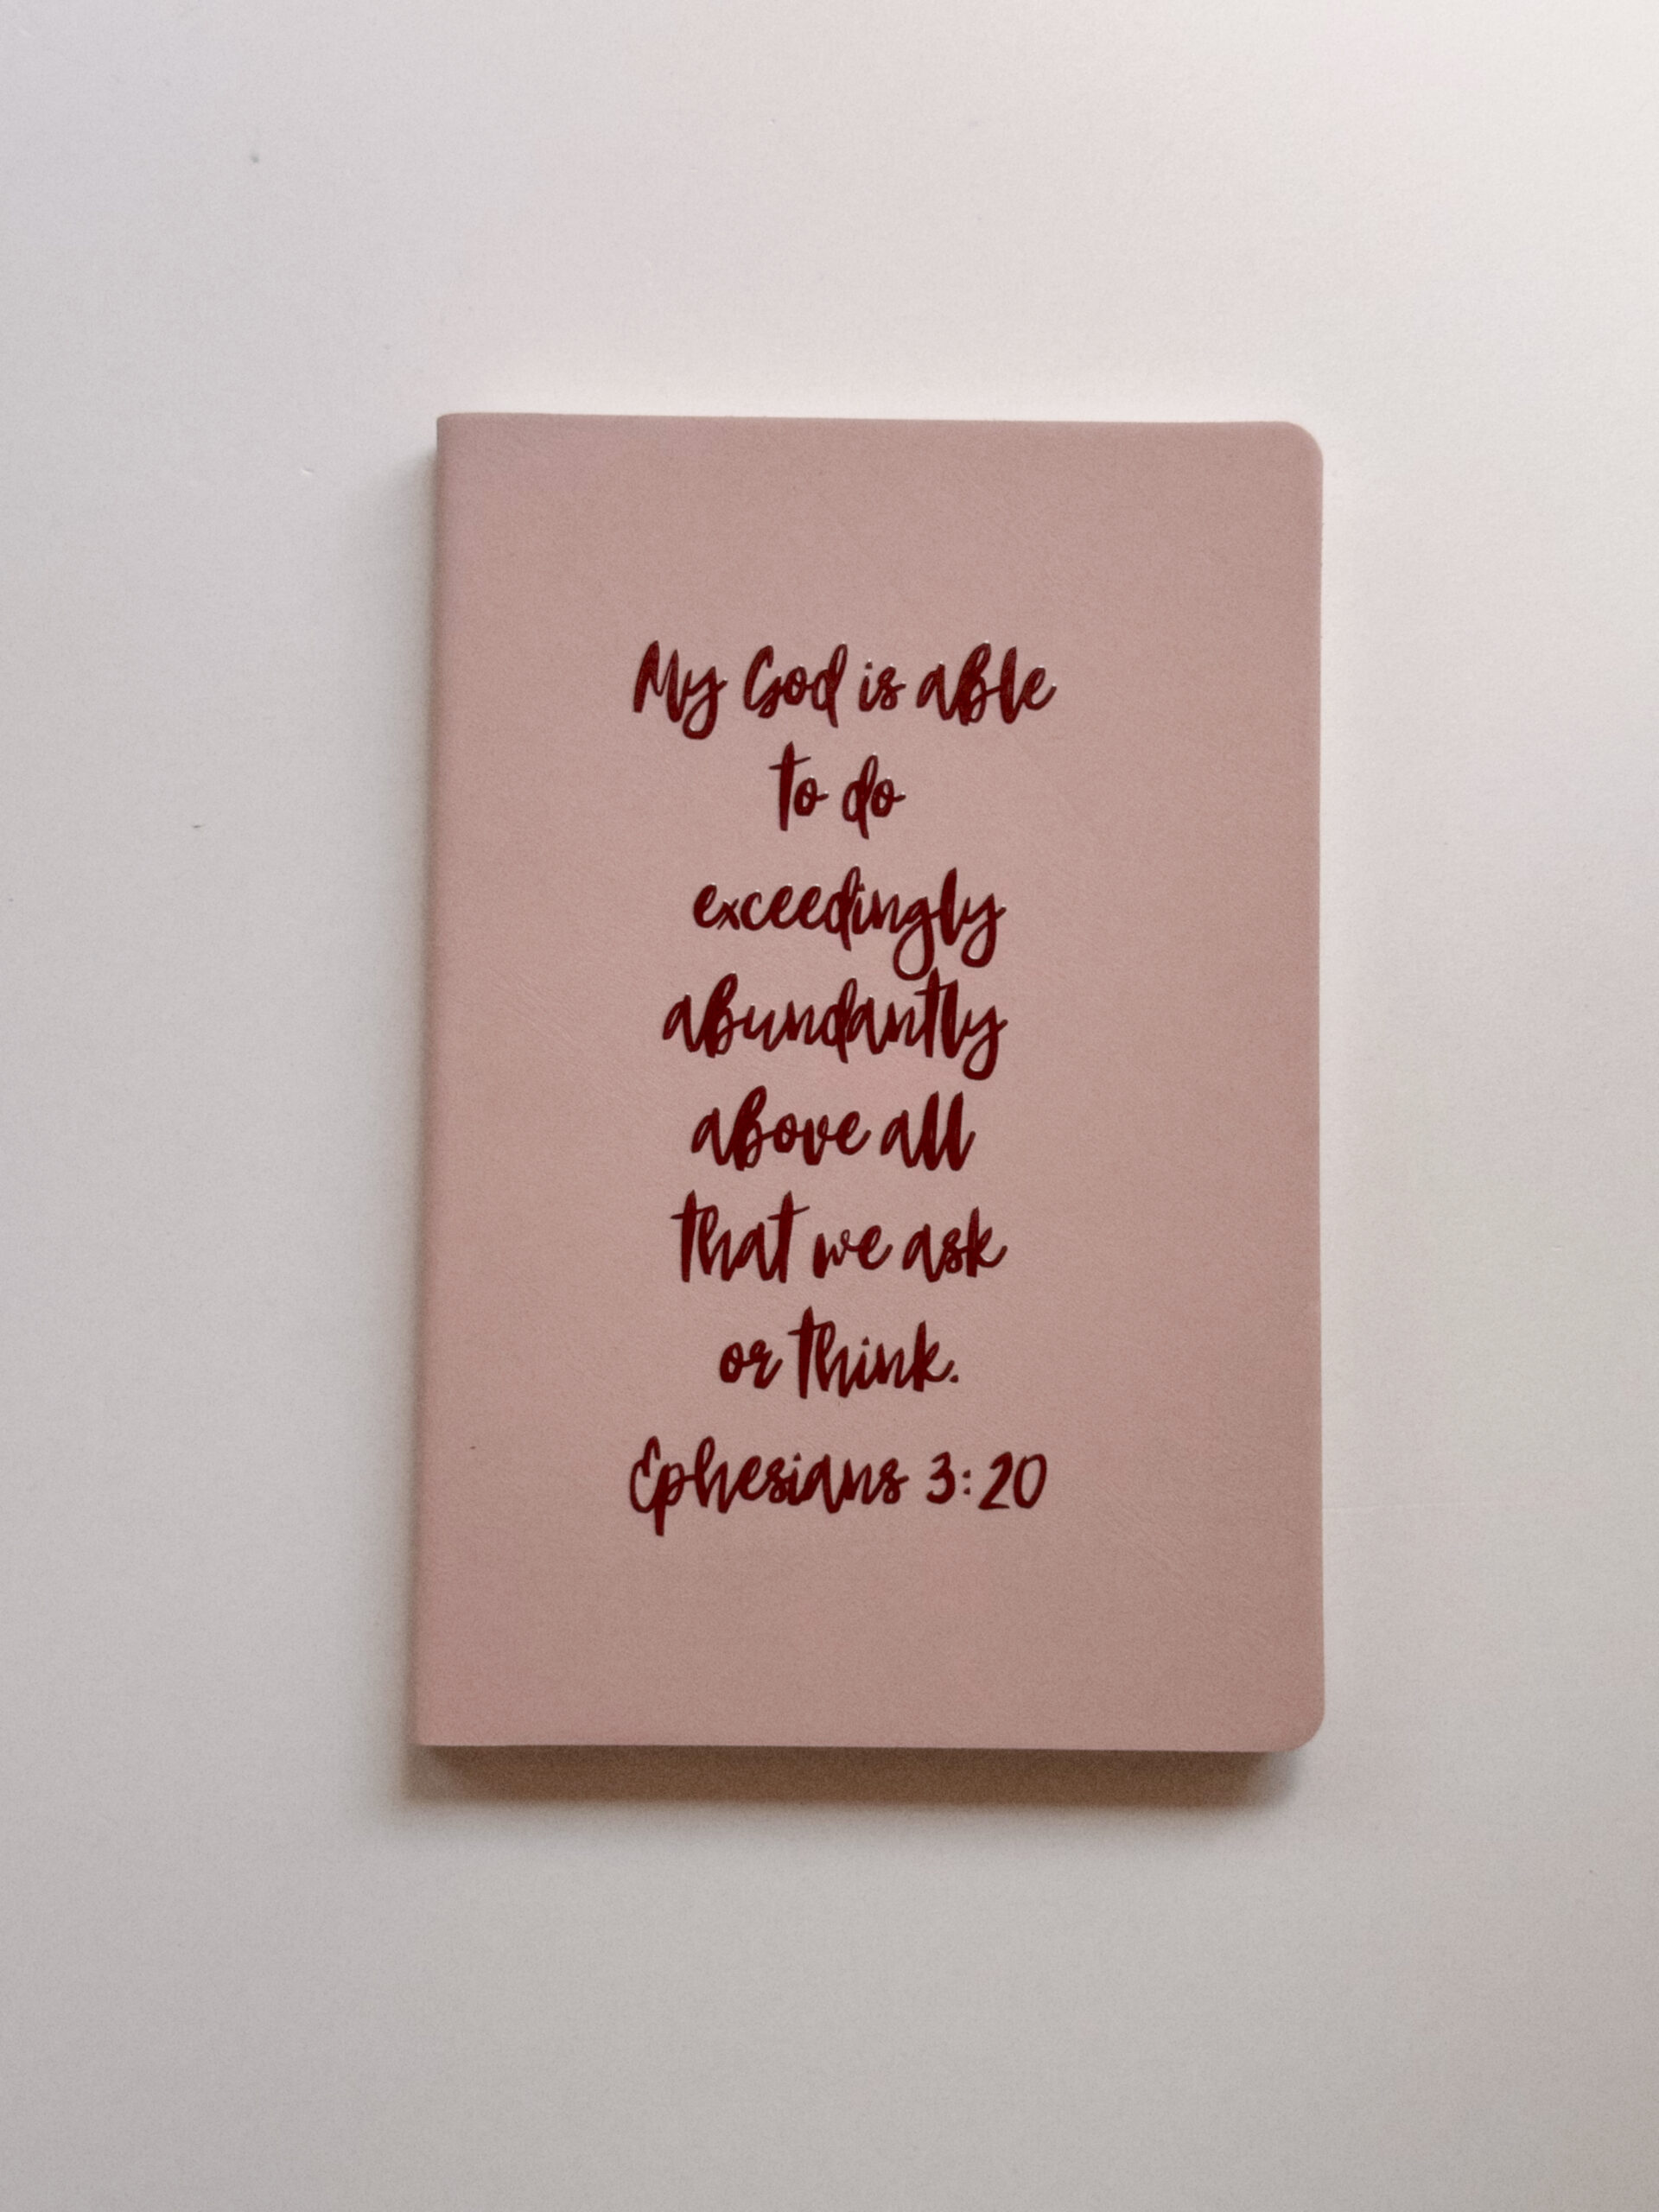 My God is able
to do
exceedingly
abundantly
above all
that we ask
or think.
Ephesians 3:20